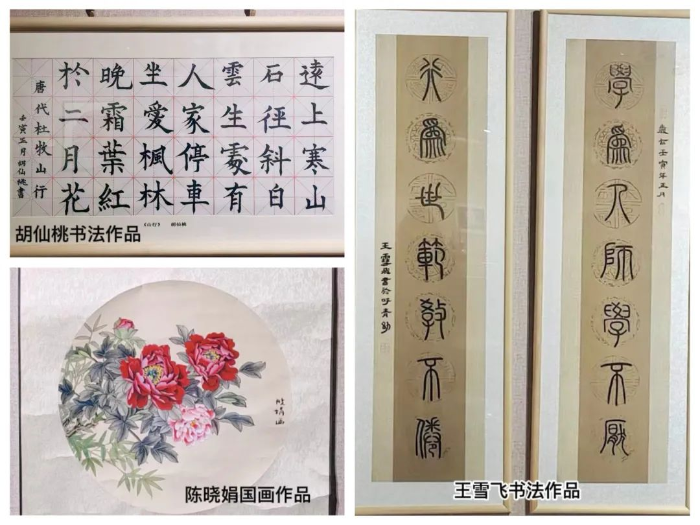 遠上寒山
石徑斜白
雲生處有
人家停車
坐愛楓林
晚霜葉紅
於二月花
唐代杜牧山行
壬寅五月胡仙桃書
《山行》 胡仙桃
胡仙桃书法作品
陈晓娟国画作品
學爲人師學不厭
歲在壬寅年五月
行爲世範教不倦
王雪飛書於呼青幼
王雪飞书法作品